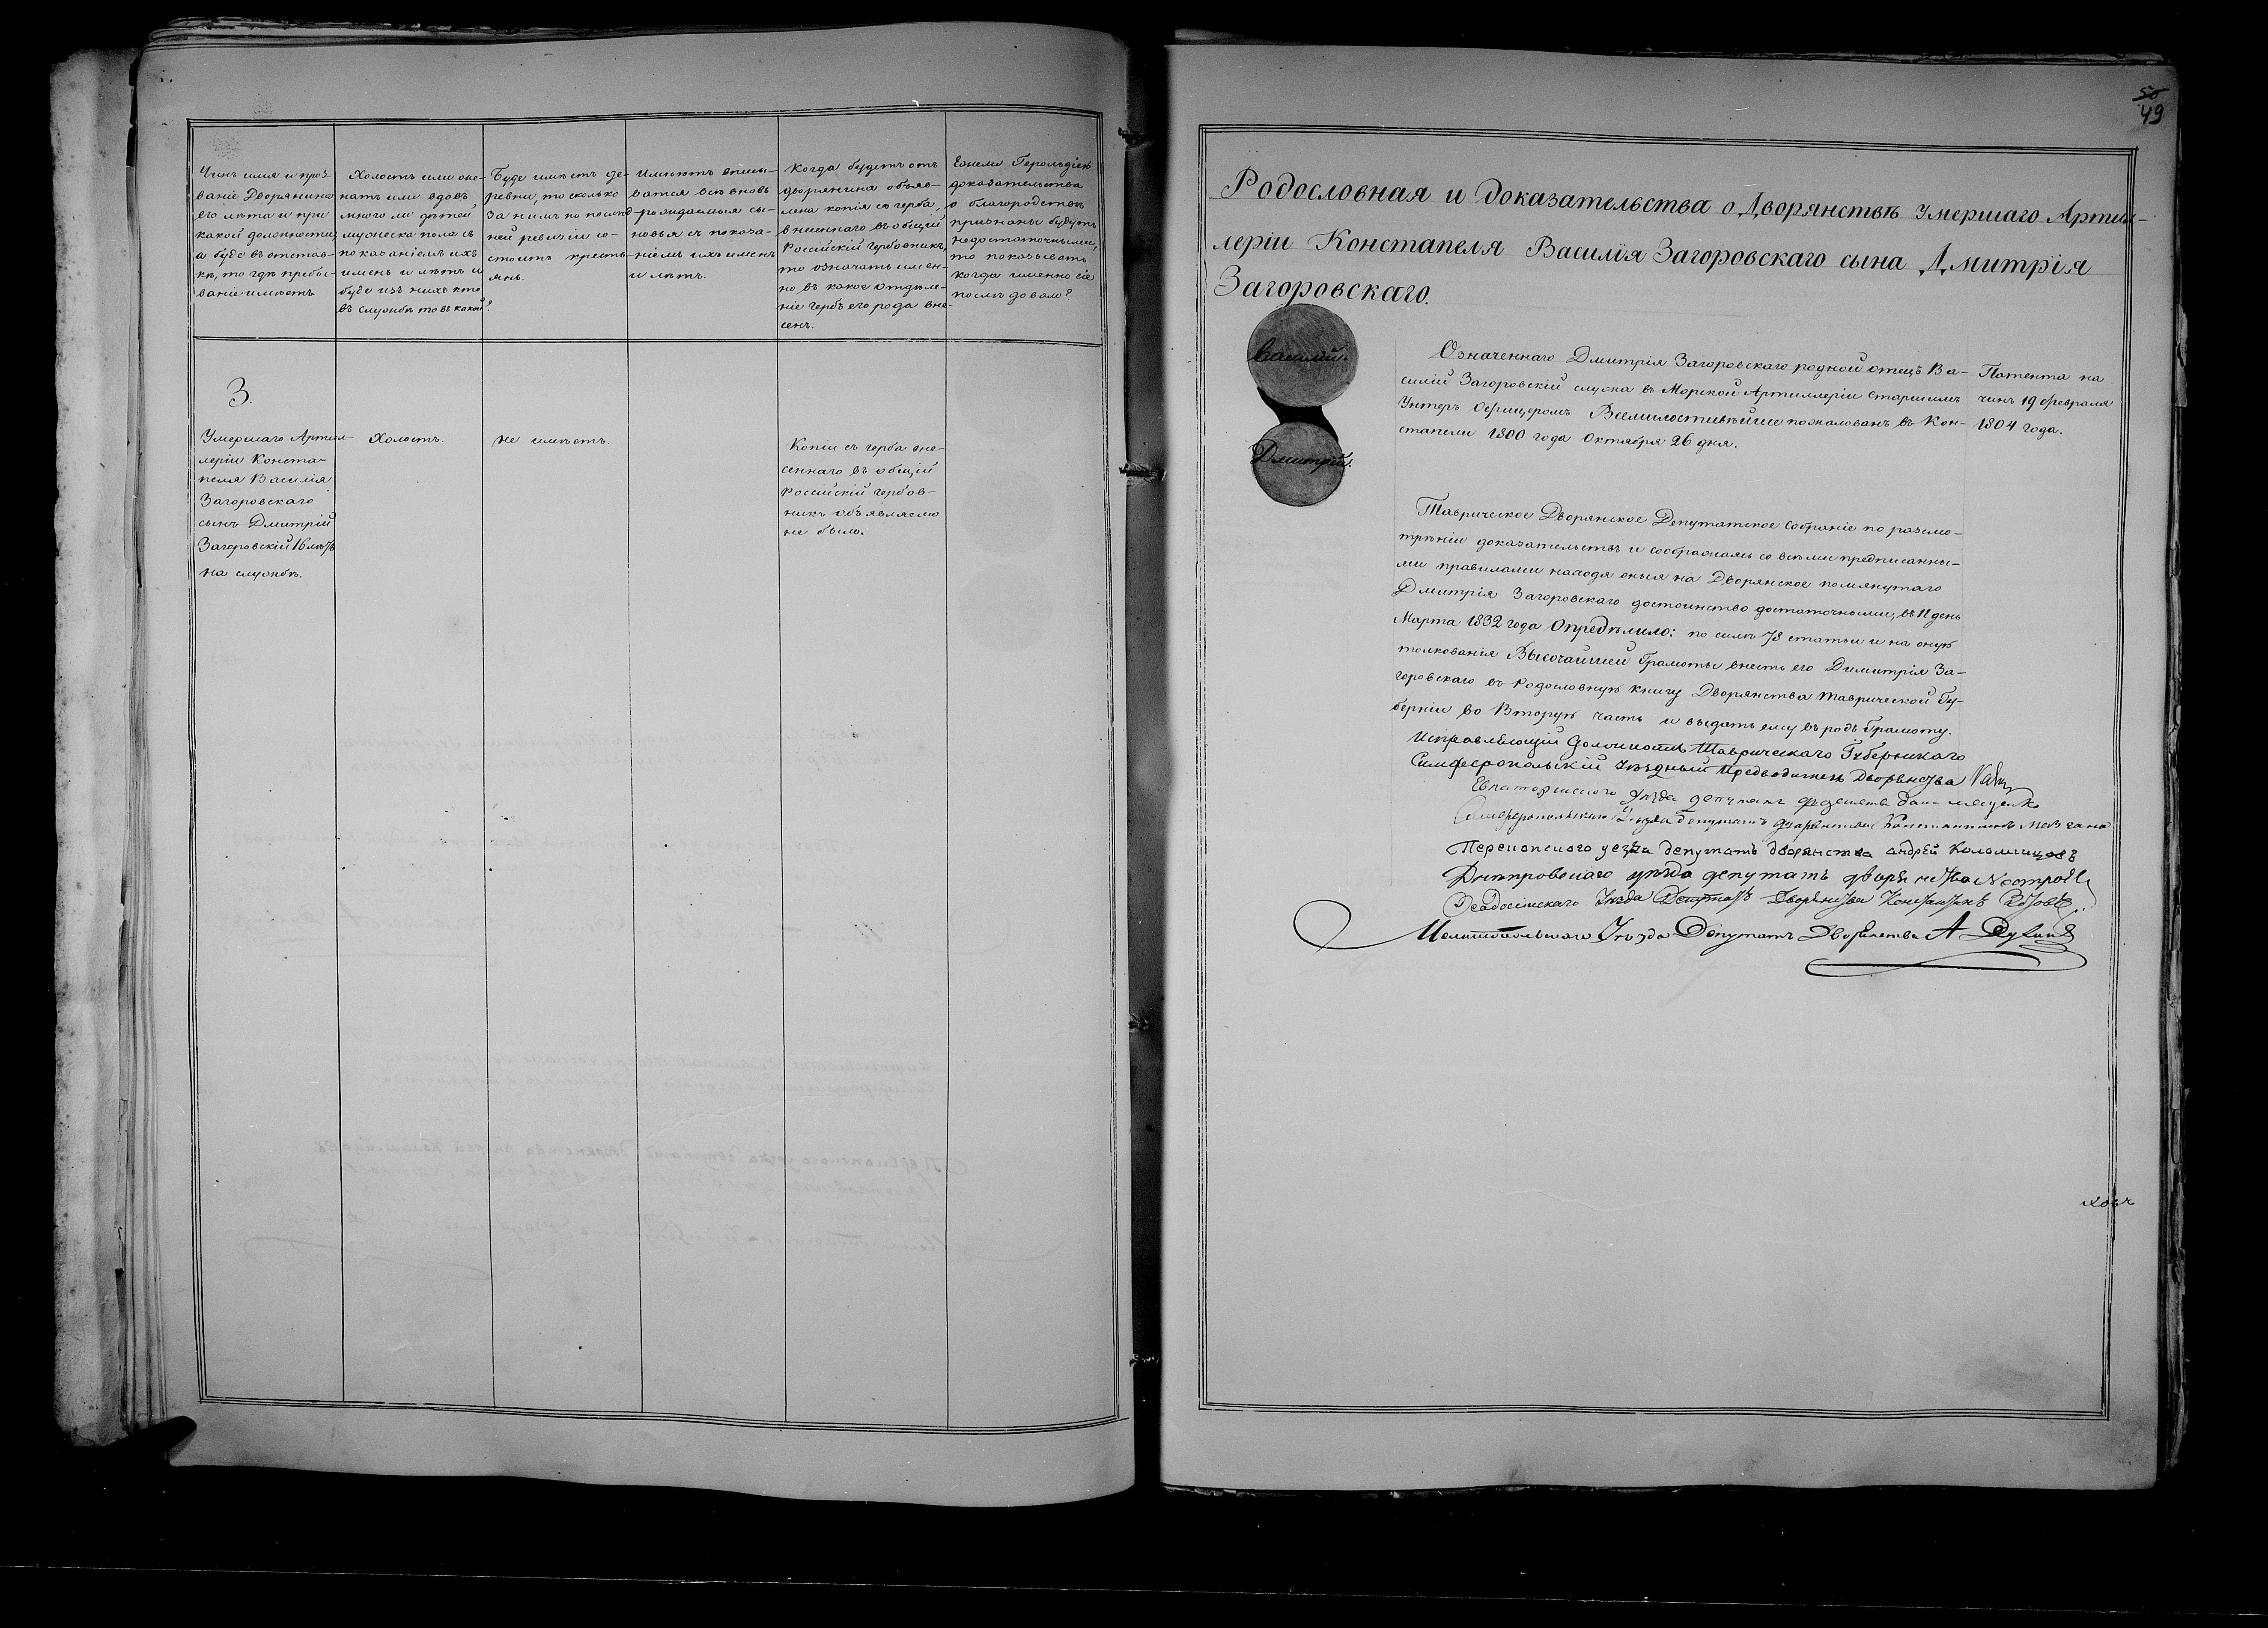 Чинъ имя и проз-
ваніе Дворянина
его лѣта и при
какой должности,
а буде въ отстав-
кѣ, то гдѣ пребы-
ваніе имѣетъ
Холостъ или же-
натъ или вдовъ
много ли дѣтей
мужеска пола съ
показаніемъ ихъ
именъ и лѣтъ и
буде изъ нихъ кто
въ службѣ то въ какой?
Буде имѣетъ де-
ревни, то сколько
за нимъ по послѣд-
ней ревизіи со-
стоитъ кресть-
янъ.
Имѣютъ впи-
ватся всѣ вновь
рождаемыя сы-
новья съ показа-
ніемъ ихъ именъ
и лѣтъ.
Когда будетъ отъ
дворянина объяв-
лена копія съ герба,
внесеннаго въ общій
Россійскій гербовникъ,
то означать имен-
но въ какое отдѣле-
ніе гербъ его рода вне-
сенъ.
Ежели Герольдіею
доказательства
о благородствѣ
признаны будутъ
недостаточными,
то показывать
когда именно сіе
послѣдовало?
3.
Умершаго Артил-
леріи Конста-
пеля Василія
Загоровскаго
сынъ Дмитрій
Загоровскій 16 лѣтъ
на службѣ.
Холостъ.
Не имѣетъ.
Копіи съ герба вне-
сеннаго въ общій
Россійскій гербов-
никъ объявляемо
не было.
50
49
Родословная и Доказательства о Дворянствѣ Умершаго Артил-
леріи Констапеля Василія Загоровскаго сына Дмитрія
Загоровскаго.
Василій.
Дмитрій.
Означеннаго Дмитрія Загоровскаго родной отецъ Ва-
силій Загоровскій служа въ Морской Артиллеріи старшимъ
Унтеръ Офицеромъ Всемилостивѣйше пожалованъ въ Кон-
стапели 1800 года Октября 26 дня.
Патента на
чинъ 19 Февраля
1804 года.
Таврическое Дворянское Депутатское Собраніе по разсмо-
трѣніи доказательствъ и соображаясь со всѣми предписанны-
ми правилами находя оныя на Дворянское помянутаго
Дмитрія Загоровскаго достоинство достаточными, въ 11 день
Марта 1832 года Опредѣлило: по силѣ 78 статьи и на оную
толкованія Высочайшей Грамоты внести его Димитрія За-
горовскаго въ Родословную книгу Дворянства Таврической Гу-
берніи во Вторую часть и выдать ему въ родъ Грамоту.
Исправляющій Должность Таврическаго Губернскаго
Симферопольскій Уѣздный Предводитель Дворянства
Евпаторійскаго Уѣзда депутатъ дворянства
Симферопольскаго Уѣзда депутатъ дворянства Константинъ
Перекопскаго уезда депутатъ дворянства андрей Коломийцовъ
Днѣпровскаго уѣзда депутатъ дворянства
Феодосійскаго Уѣзда Депутатъ Дворянства
Мелитопольскаго Уѣзда Депутатъ Дворянства А